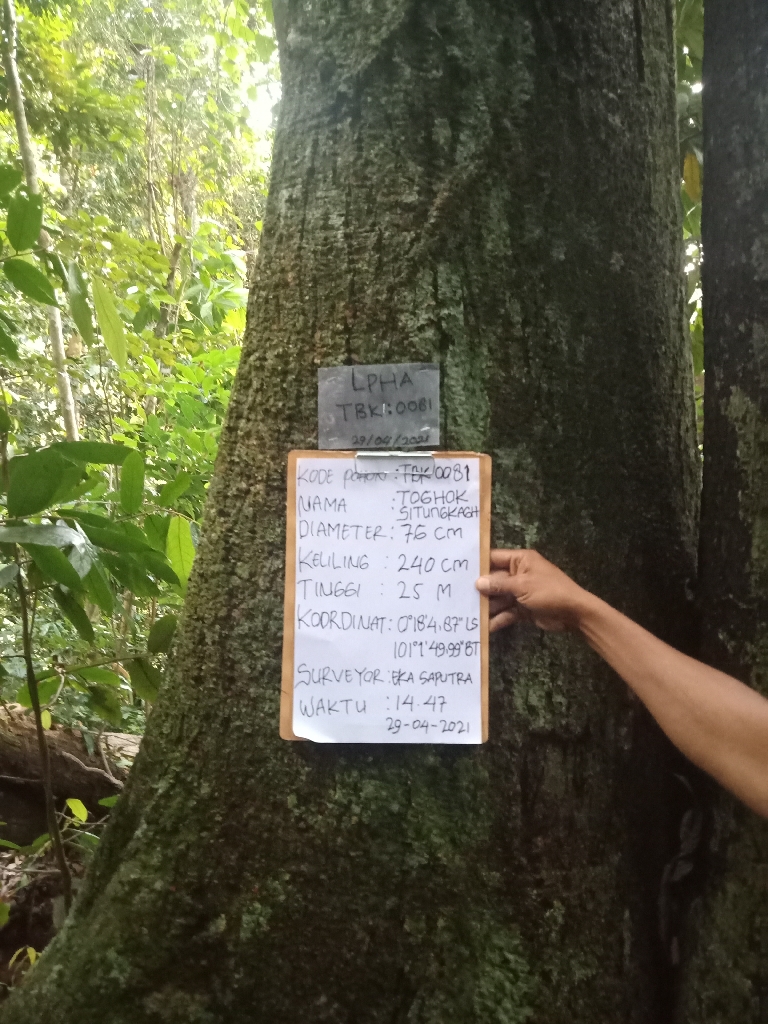 LPHA
TBK:0081
29/04/2021
KODE POHON : TBK 0081
NAMA : TOGHOK
SITUNGKAGH
DIAMETER : 76 CM
KELILING : 240 CM
TINGGI : 25 M
KOORDINAT : 0°18'4,87" LS
101°1'49.99" BT
SURVEYOR : EKA SAPUTRA
WAKTU : 14.47
29-04-2021